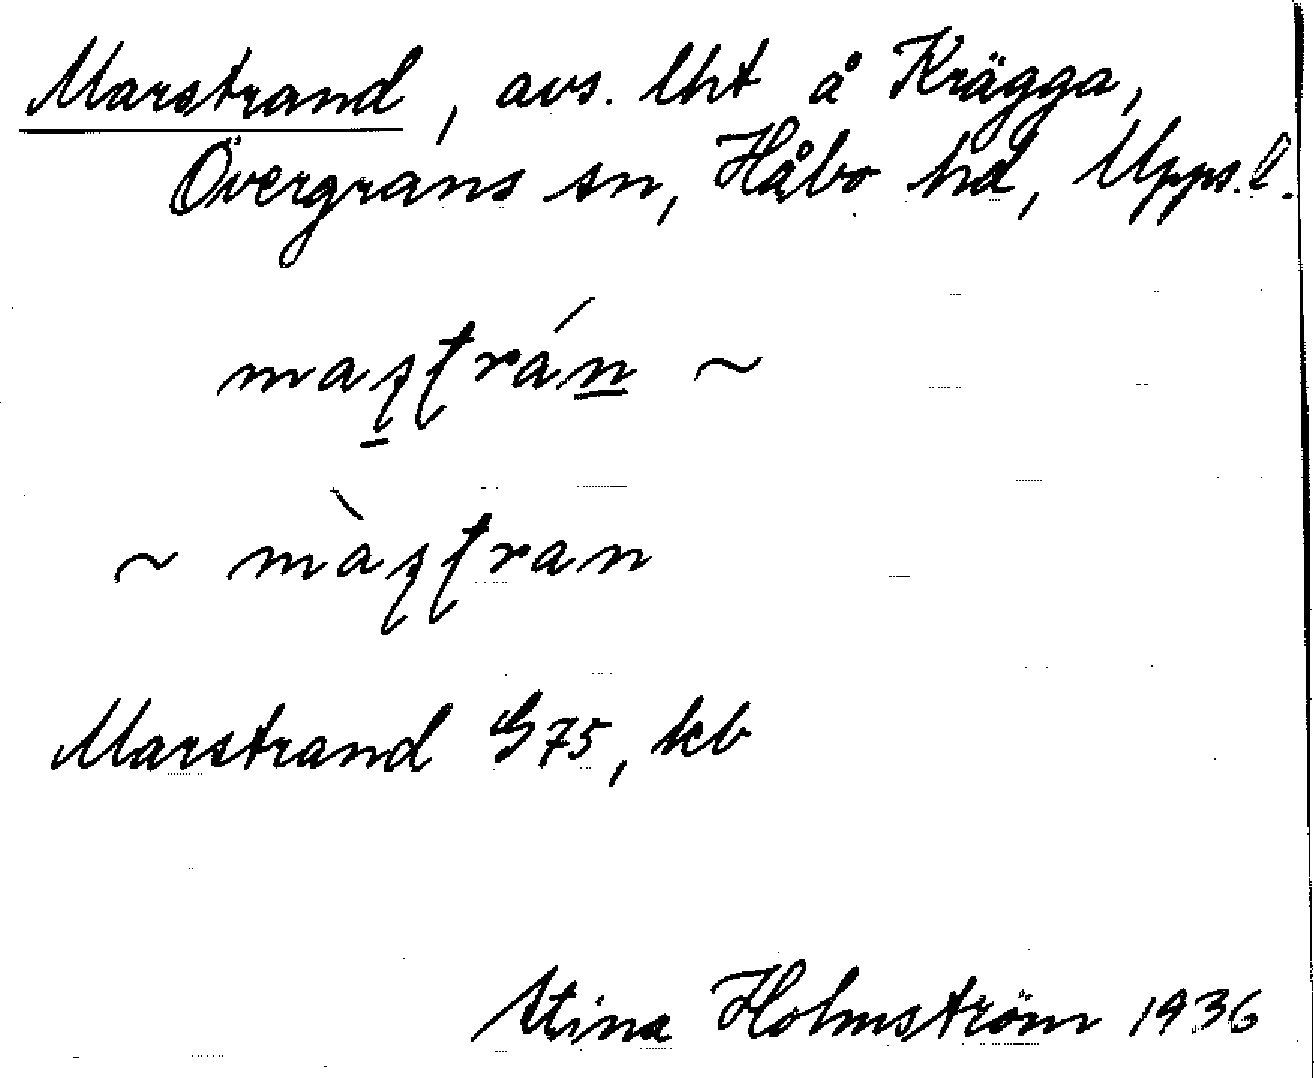 Marstrand, avs. lht å Krägga,
Övergrans sn, Håbo hd, Upps. l.
maʂʈrán ~
~ màʂʈran
Marstrand G75, kb
Stina Holmström 1936